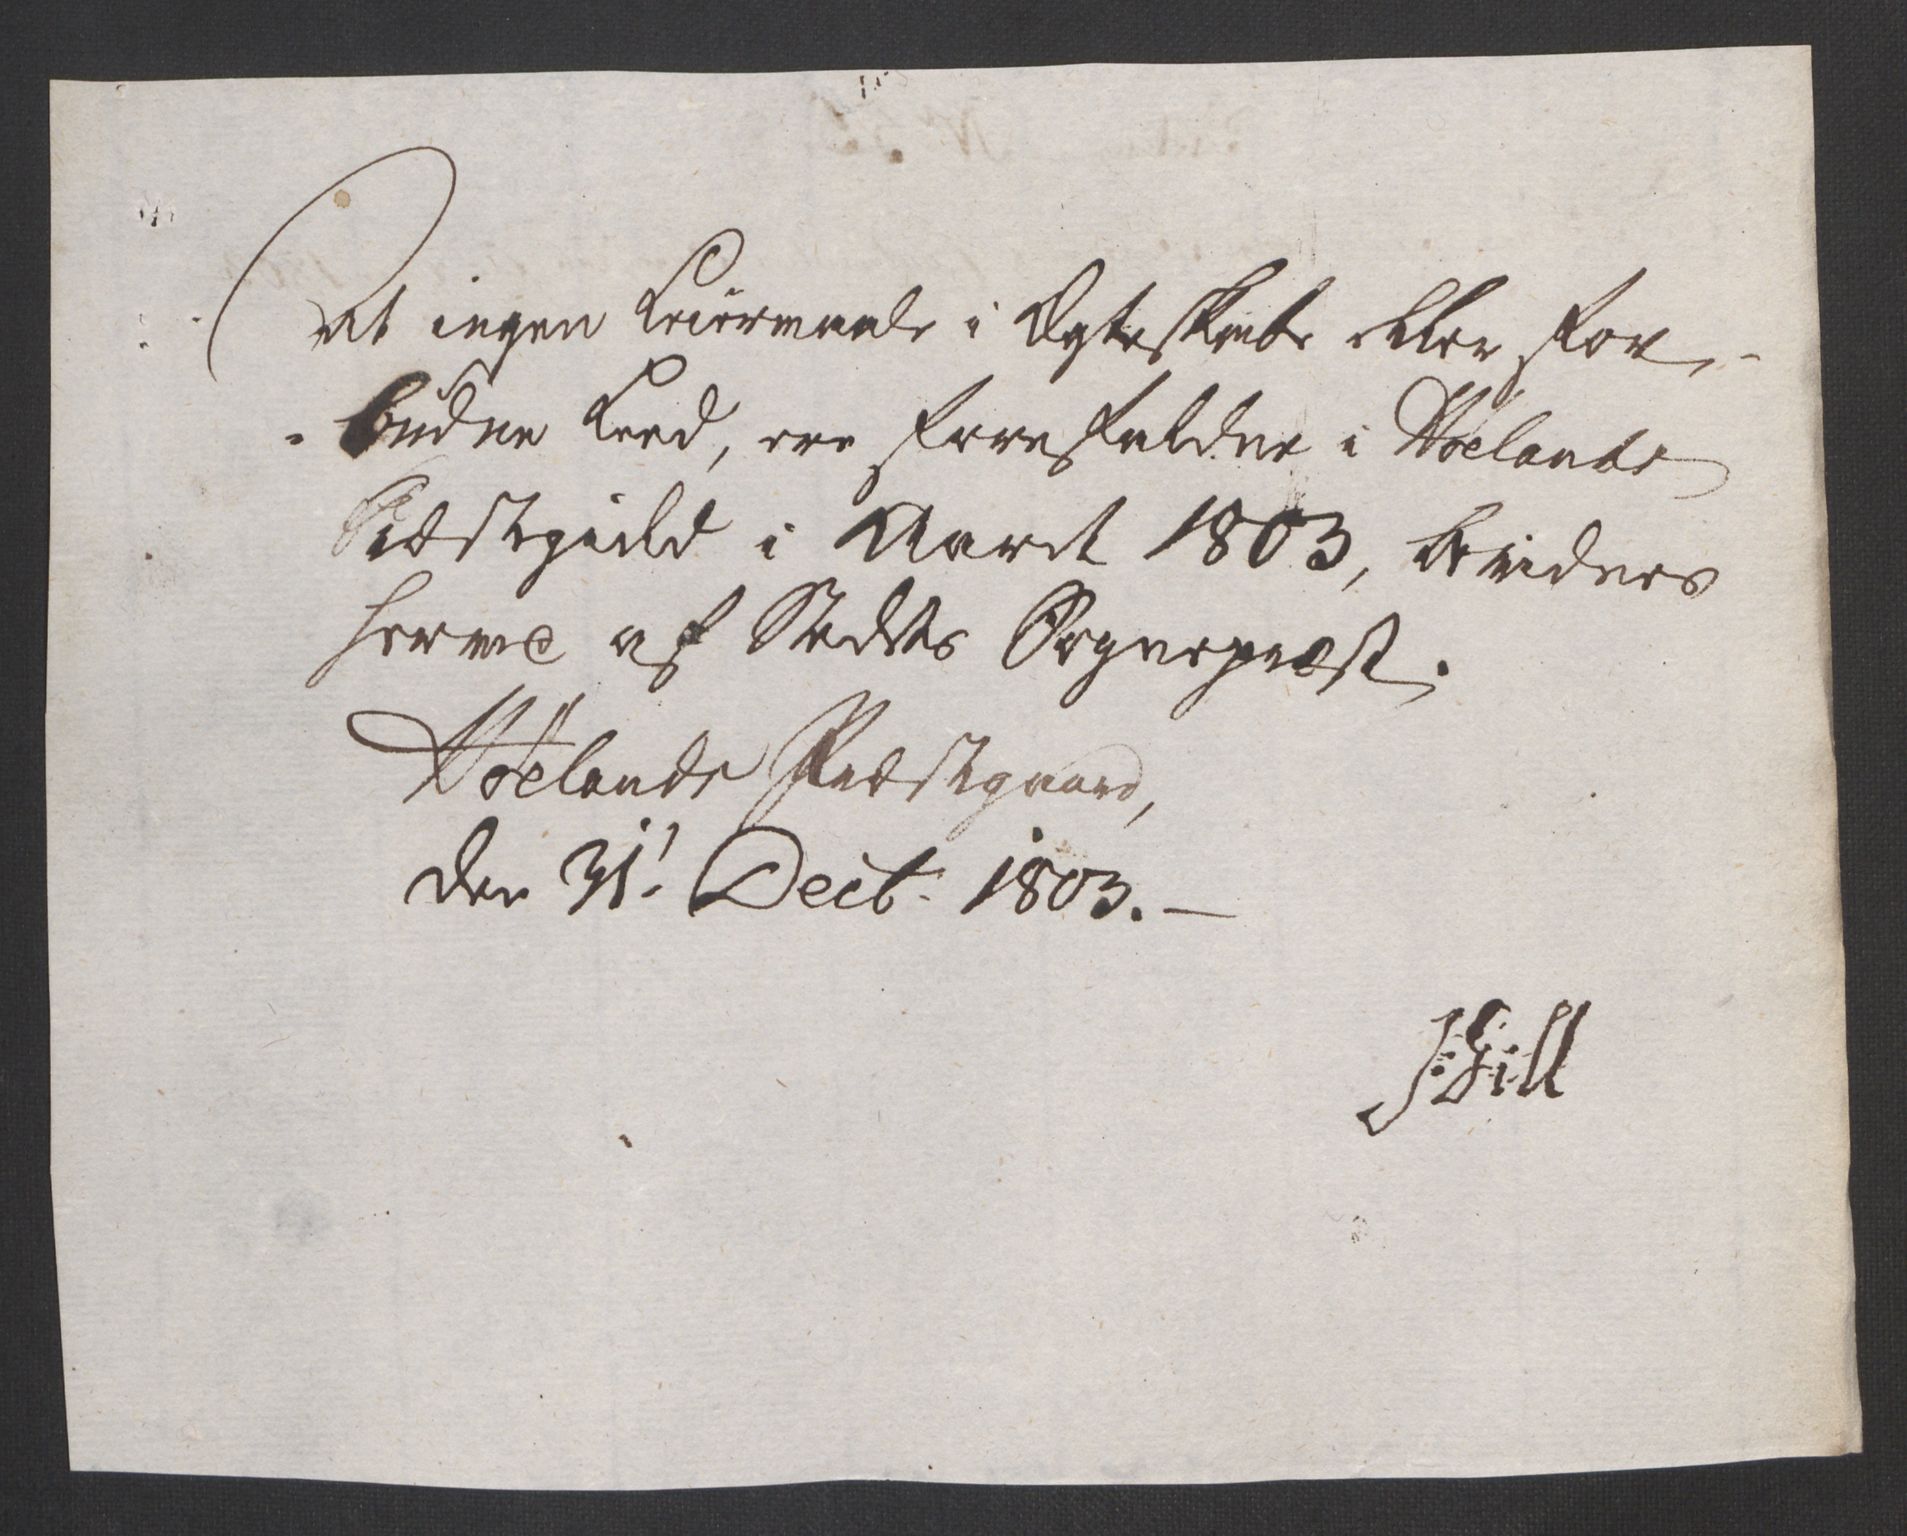 At ingen Leiermaale i Egteskabs eller for-
-budne Leed, ere forefaldne i Høelands
Præstegield i Aaret 1803, bevidnes
herved af Stedets Sognepræst.
Høelands Præstegaard,
den 31t Decb. 1803. —